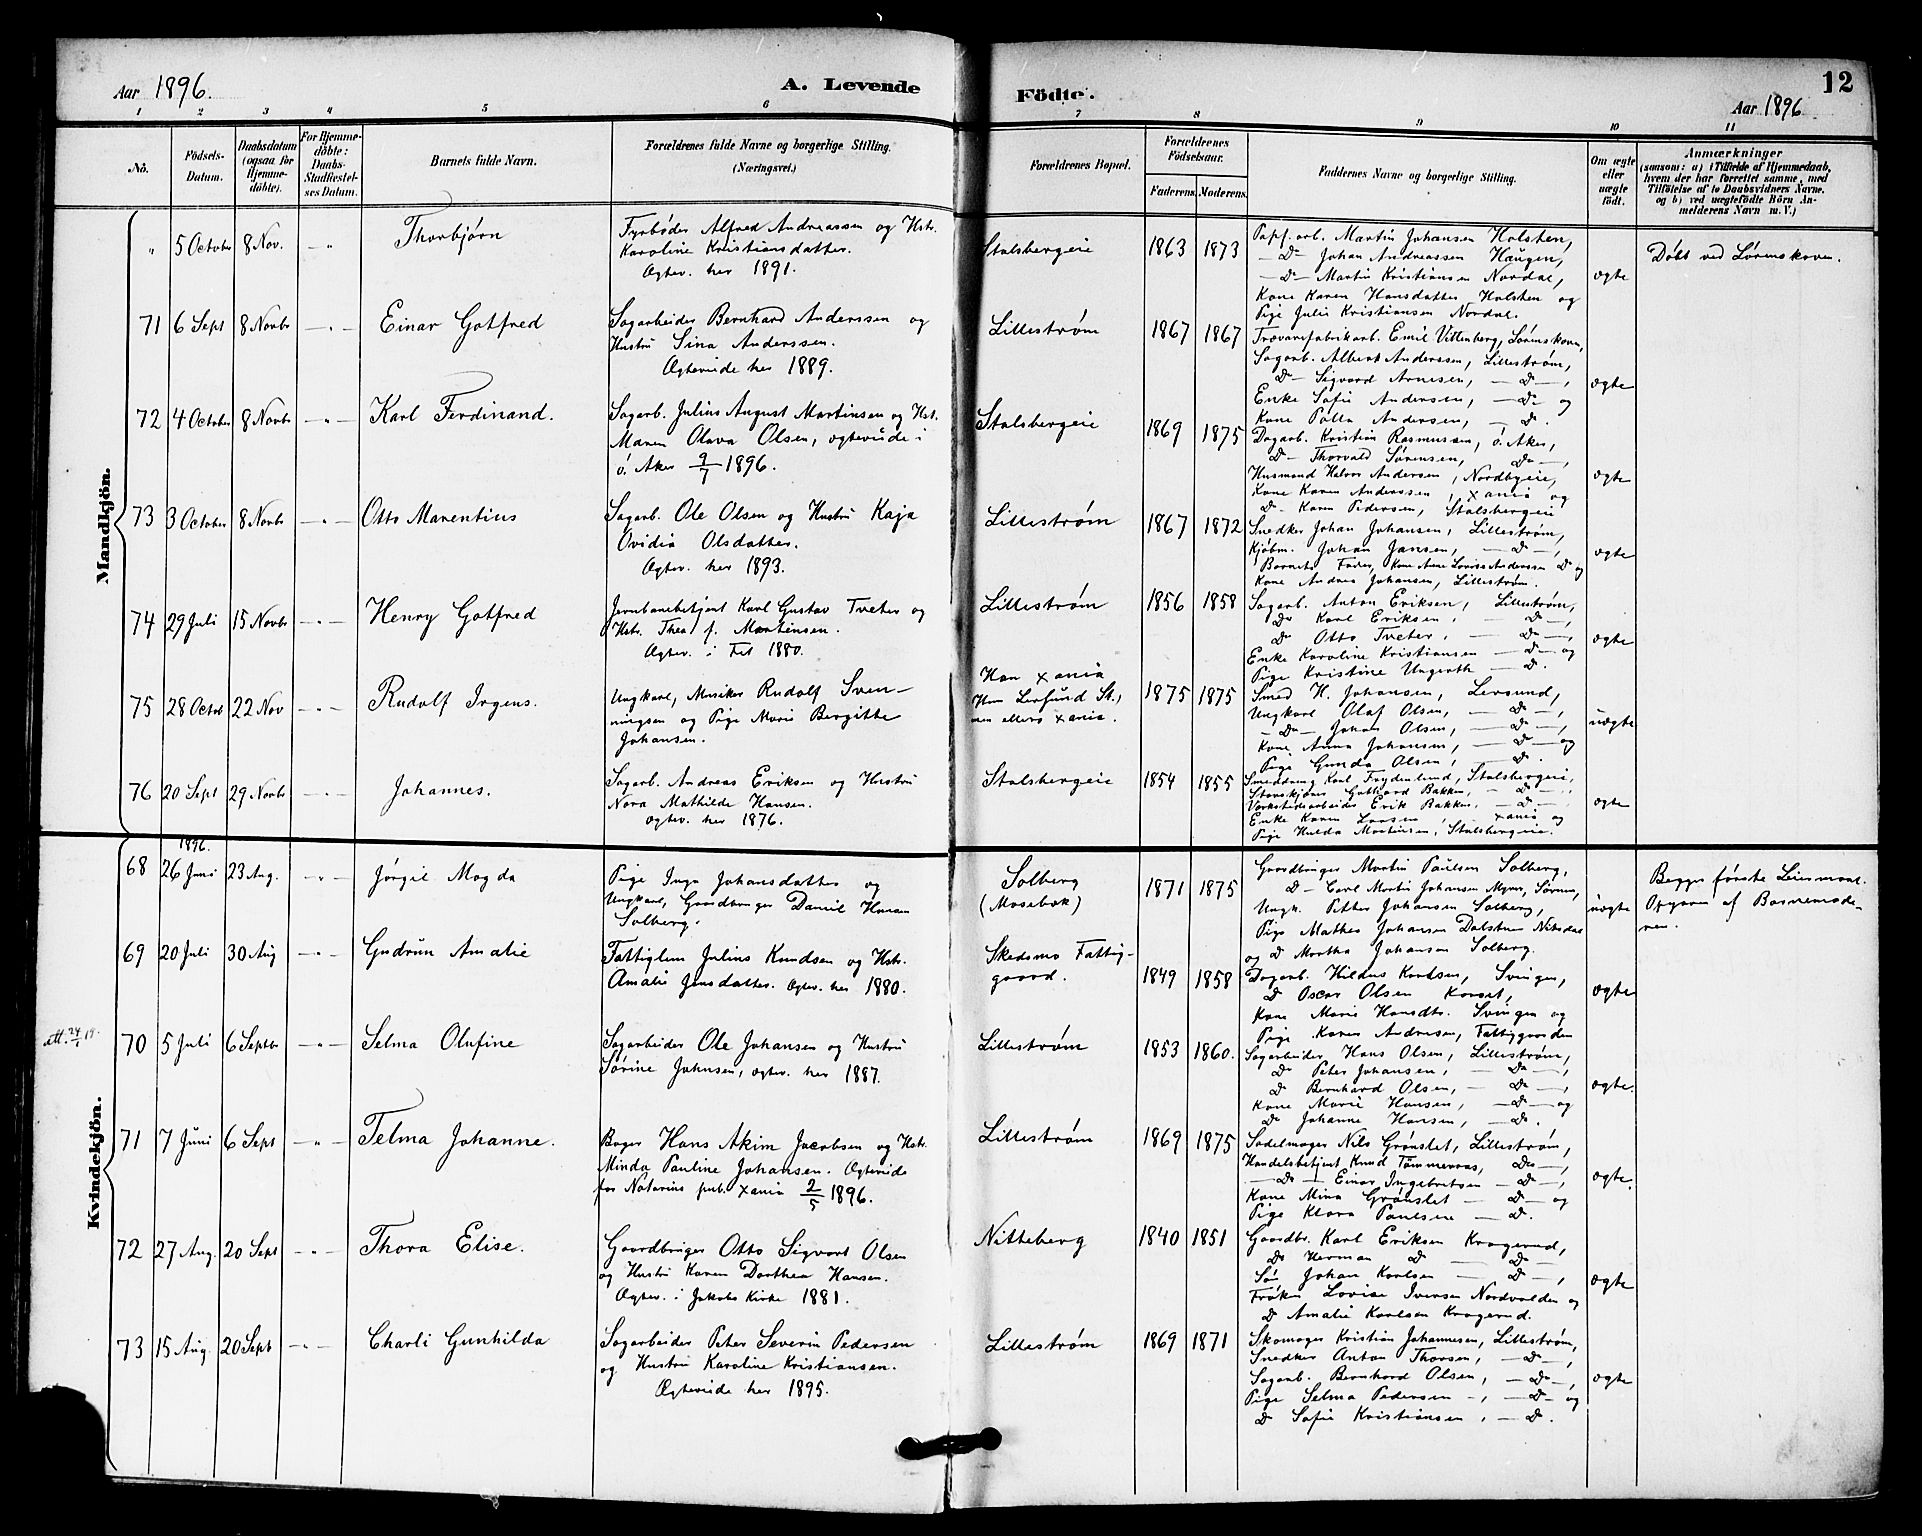 Aar 1896.
A. Levende
Födte.
12
Aar 1896
1 2 3 4 5 6 7 8 9 10 11
No.
Födsels-
Datum.
Daabsdatum
(ogsaa for
Hjemme-
döbte).
For Hjemme-
döbte:
Daabs-
Stadfæstel-
ses Datum.
Barnets fulde Navn.
Forældrenes fulde Navne og borgerlige Stilling.
(Næringsvei.)
Forældrenes Bopæl.
Forældrenes
Födselsaar.
Faderens.
Moderens.
Faddernes Navne og borgerlige Stilling.
Om ægte
eller
uægte
födt.
Anmærkninger
(saasom: a) i Tilfælde af Hjemmedaab,
hvem der har forrettet samme, med
Tilföielse af to Daabsvidners Navne.
og b) ved uægtefödte Börn An-
melderens Navn m. V.)
Mandkjön.
" 5 October 8 Nov. – " Thorbjørn
Fyrbøder Alfred Andreassen og Hstr.
Karoline Kristiansdatter.
Ægtev. her 1891.
Stalsbergeie 1863 1873
Papf. arb. Martin Johansen Holsten,
— Do Johan Andreassen Haugen,
— Do — Martin Kristiansen Nordal,
Kone Karen Hansdatter Holsten og
Pige Julie Kristiansen Nordal.
ægte
Døbt ved Lørenskoven.
71 6 Sept 8 Novbr – " – Einar Gotfred
Sagarbeider Bernhard Anderssen og
Hustru Sina Anderssen.
Ægteviede her 1889.
Lillestrøm 1867 1867
Trævarefabrikarb. Emil Vittenberg, Lørenskoven,
Sagarb. Albert Anderssen, Lillestrøm,
Do — Sigvard Arnesen, — Do —,
Enke Sofie Anderssen, — Do — og
Kone Palla Andersen, — Do.
ægte
72 4 October 8 Novbr – " – Karl Ferdinand.
Sagarb. Julius August Martinsen og Hst.
Maren Olava Olsen, ægteviede i
Ø. Aker 9/7 1896.
Stalsbergeie 1869 1875
Dagarb. Kristian Rasmussen, Ø. Aker,
Do — Thorvald Sørensen, Do —,
Husmand Halvor Andersen, Nordbyeie,
Kone Karen Anderssen, Xania og
Do — Karen Pedersen, Stalsbergeie
ægte
73 3 October 8 Novbr – " – Otto Marentius
Sagarb. Ole Olsen og Hustru Kaja
Ovidia Olsdatter.
Ægtev. her 1893.
Lillestrøm 1867 1872
Snedker Johan Johansen, Lillestrøm,
Kjøbm. Johan Jansen, — Do —,
Barnets Fader, Kone Anne Lovise Anderssen Do og
Kone Andrea Johansen, Lillestrøm.
ægte
74 29 Juli 15 Novbr – " – Henry Gotfred
Jernbanebetjent Karl Gustav Tveter og
Hstr. Thea f. Martinsen.
Ægtev. i Fet 1880.
Lillestrøm 1856 1858
Sagarb. Anton Eriksen, Lillestrøm,
Do Karl Eriksen, — Do —,
Do Otto Tveter, — Do —,
Enke Karoline Kristiansen — Do — og
Pige Kristine Ungerth — Do.
ægte
75 28 Octob 22 Nov – " – Rudolf Irgens.
Ungkarl, Musiker Rudolf Sven-
ningsen og Pige Marie Bergitte
Johansen.
Han Xania
Hun Lersund St.,
men ellers Xania.
1875 1875
Smed H. Johansen, Lersund,
Ungkarl Olaf Olsen, — Do —,
— Do — Johan Olsen, — Do —,
Kone Anna Johansen, — Do — og
Pige Gunda Olsen, — Do.
uægte
76 20 Sept 29 Novbr – " – Johannes.
Sagarb. Andreas Eriksen og Hustru
Nora Mathilde Hansen.
Ægtev. her 1876.
Stalsbergeie 1854 1855
Smeddreng Karl Frydenlund, Stalsbergeie,
Gothard Bakken, — Do —,
Værkstedsarbeider Erik Bakken, — Do —
Enke Karen Larsen, Xania og
Pige Hulda Martinsen, Stalsbergeie.
ægte
Kvindekjön.
1896.
68 26 Juni 23 Aug. – " – Jørgie Magda
Pige Inga Johansdatter og
Ungkarl, Gaardbruger Daniel Hansen
Solberg.
Solberg
(Mosebæk)
1871 1875
Gaardbruger Martin Paulsen Solberg,
Do — Carl Martin Johansen Myrer, Sørum,
Ungk. Petter Johansen Solberg,
Pige Mathea Johansen Dalstuen Nitedal
og Do Martha Johansen Solberg.
uægte
Begges første Leiermaal.
Opgaven af Barnemode-
ren.
69 20 Juli 30 Aug – " – Gudrun Amalie
Fattiglem Julius Knudsen og Hstr.
Amalie Jensdatter. Ægtev. her 1880.
Skedsmo Fattig-
gaard.
1849 1858
Dagarb. Hildus Knudsen, Svingen,
Do Oscar Olsen Korset,
Kone Marie Hansdtr. Svingen og
Pige Karen Andresen, Fattiggaarden
ægte
att. 24/1 19.
70 5 Juli 6 Septbr – " – Selma Olufine
Sagarbeider Ole Johansen og Hustru
Sørine Johnsen, ægtev. her 1887.
Lillestrøm 1853 1860.
Sagarbeider Hans Olsen, Lillestrøm,
Do Peter Johansen, — Do —,
Do Bernhard Olsen, — Do —,
Kone Marie Hansen, — Do — og
Do Johanne Hansen, — Do.
ægte.
71 7 Juni 6 Sept – " – Telma Johanne.
Bager Hans Akim Jacobsen og Hstr.
Minda Pauline Johansen. Ægteviede
for Notarius pub. Xania 2/5 1896.
Lillestrøm 1869 1875
Sadelmager Nils Grønslet, Lillestrøm,
Handelsbetjent Knud Tømmeraas, Do —,
— Do — Einar Ingebretsen — Do —,
Kone Mina Grønslet — Do — og
Pige Klara Paulsen — Do.
ægte.
72 27 Aug. 20 Sept – " – Thora Elise.
Gaardbruger Otto Sigvart Olsen
og Hustru Karen Dorthea Hansen.
Ægtev. i Jakobs Kirke 1881.
Nitteberg 1840 1851
Gaardbr. Karl Eriksen Kragerud,
Do Herman Do — Do —
Søn Johan Karlsen — Do —,
Frøken Lovise Iversen Nordvolden og
Do Amalie Karlsen Kragerud.
ægte
73 15 Aug. 20 Sept – " – Charli Gunhilda
Sagarbeider Peter Severin Pedersen
og Hustru Karoline Kristiansen.
Ægteviede her 1895.
Lillestrøm 1869 1871
Skomager Kristian Johannesen, Lillestrøm,
Snedker Anton Thorsen, — Do —,
Sagarb. Bernhard Olsen, — Do —,
Pige Selma Pedersen —, — Do — og
Do Sofie Kristiansen, — Do.
ægte